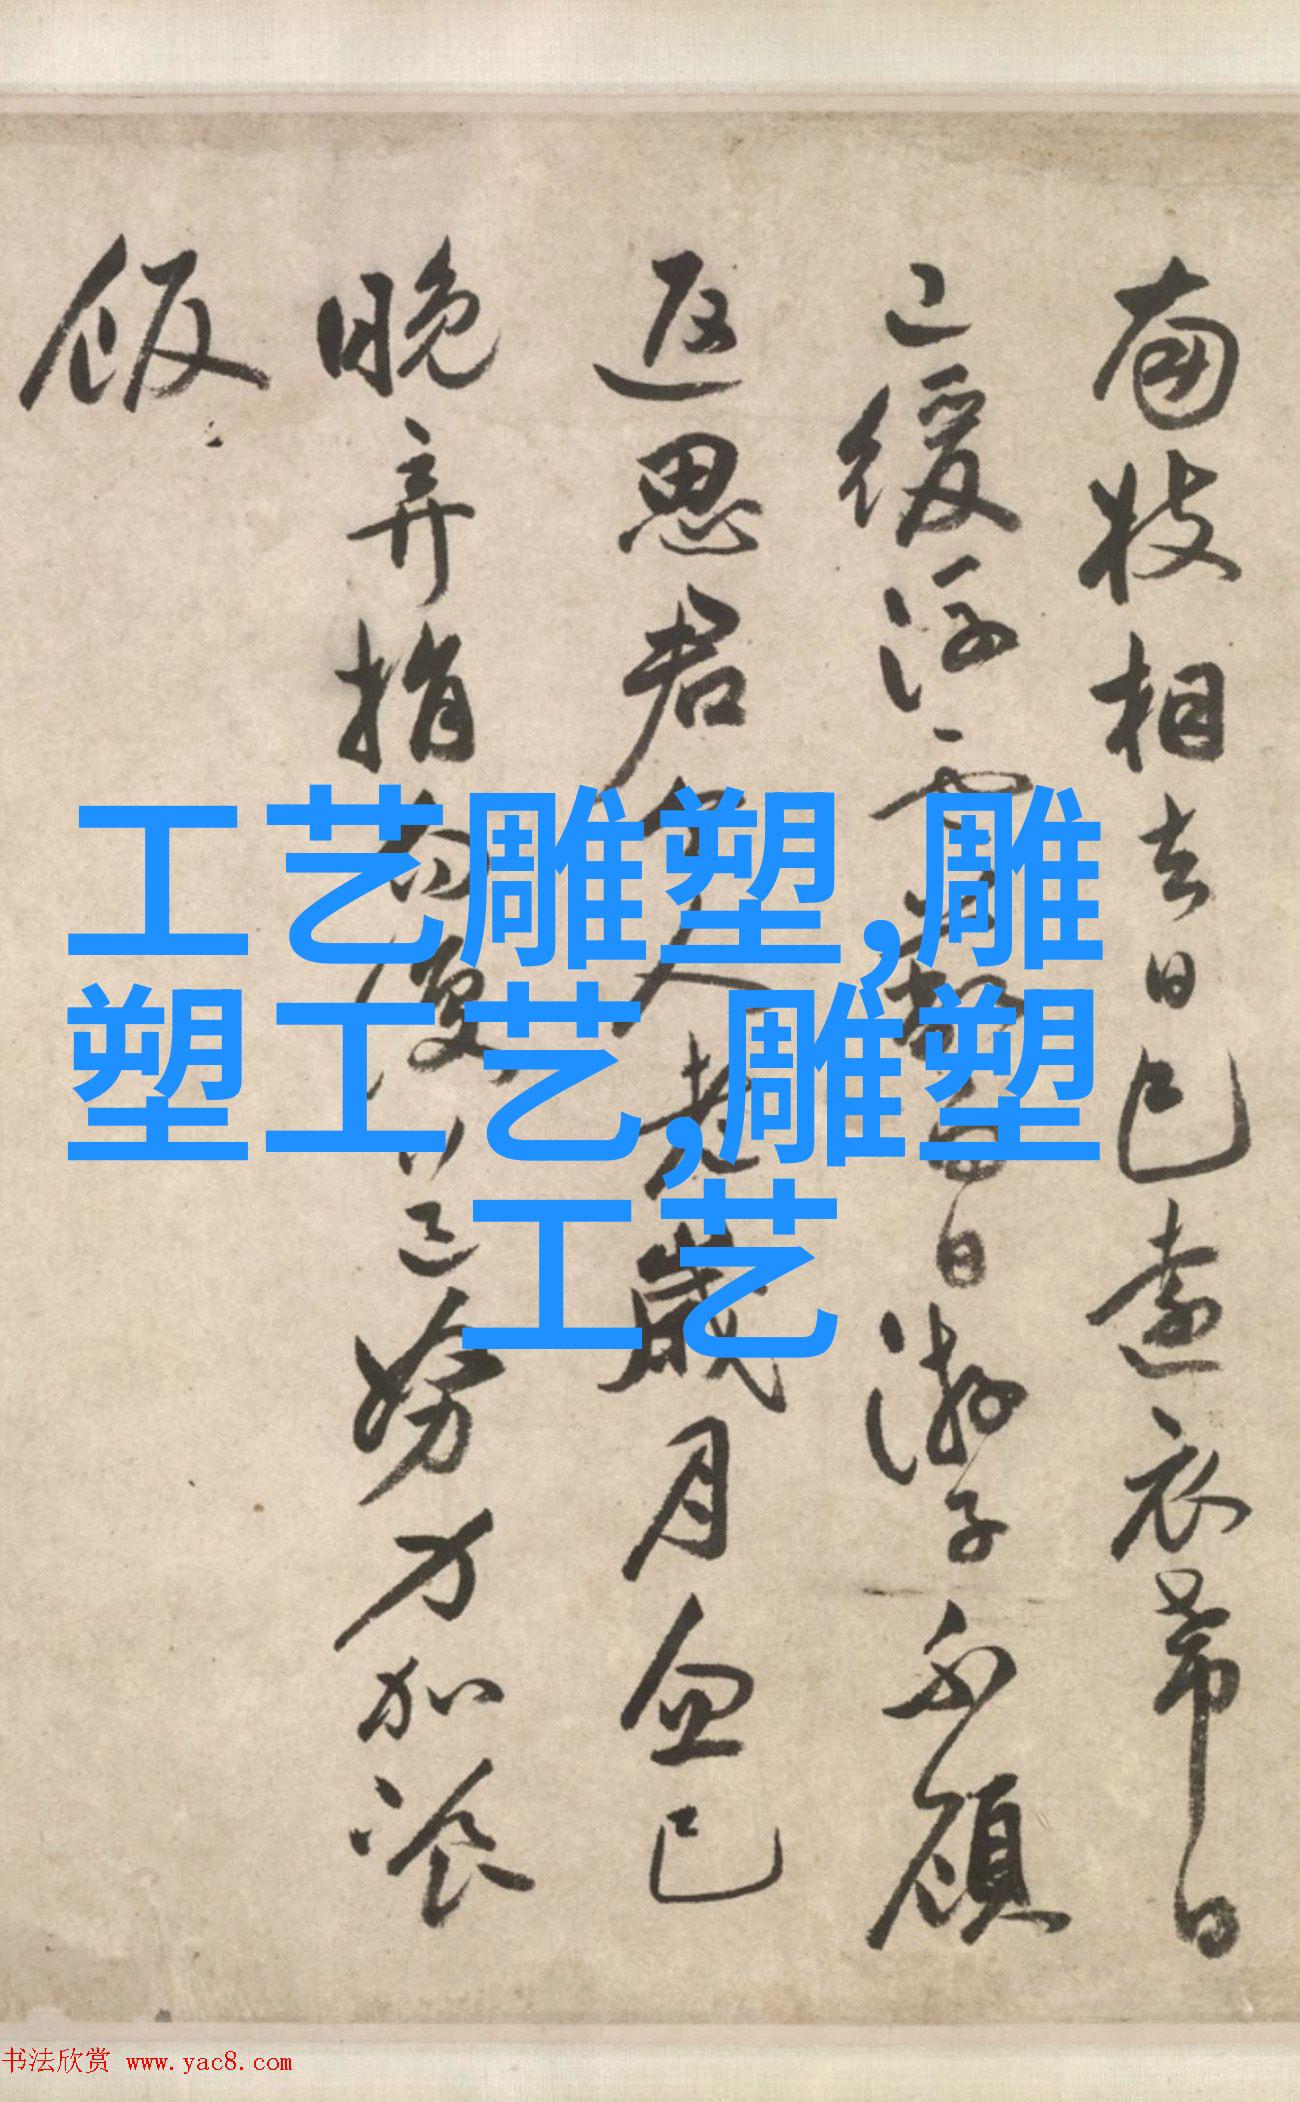 南枝相去日已遠衣帶日
已緩浮雲蔽白日游子不顧
返思君令人老歲月忽已
晚弃捐勿復道努力加餐
飯
工艺雕塑,雕
塑工艺,雕塑
工艺
书法欣赏 www.yac8.com